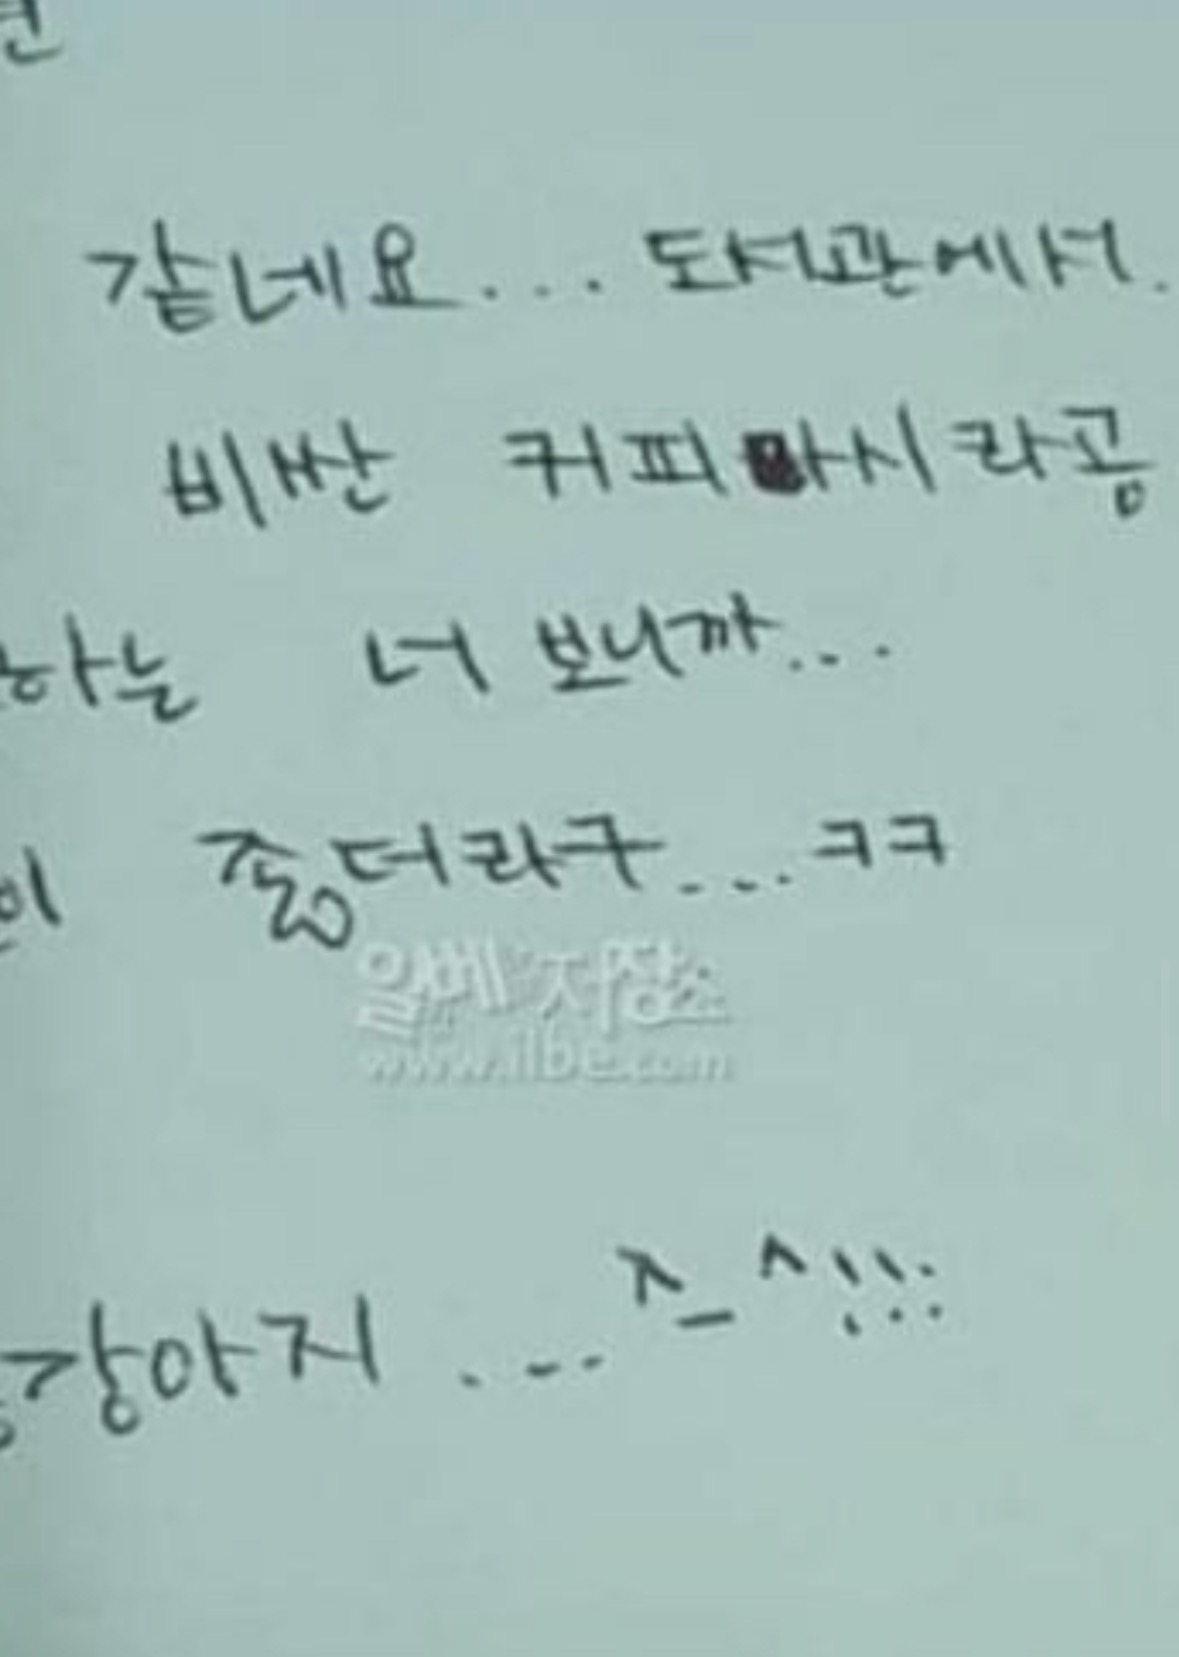 같네요... 도서관에서.
비싼 커피 마시라곰
하는 너 보니까...
이 좋더라구....ㅋㅋ
일베 저장소
www.ilbe.com
강아지.... ㅈㅅ!!!